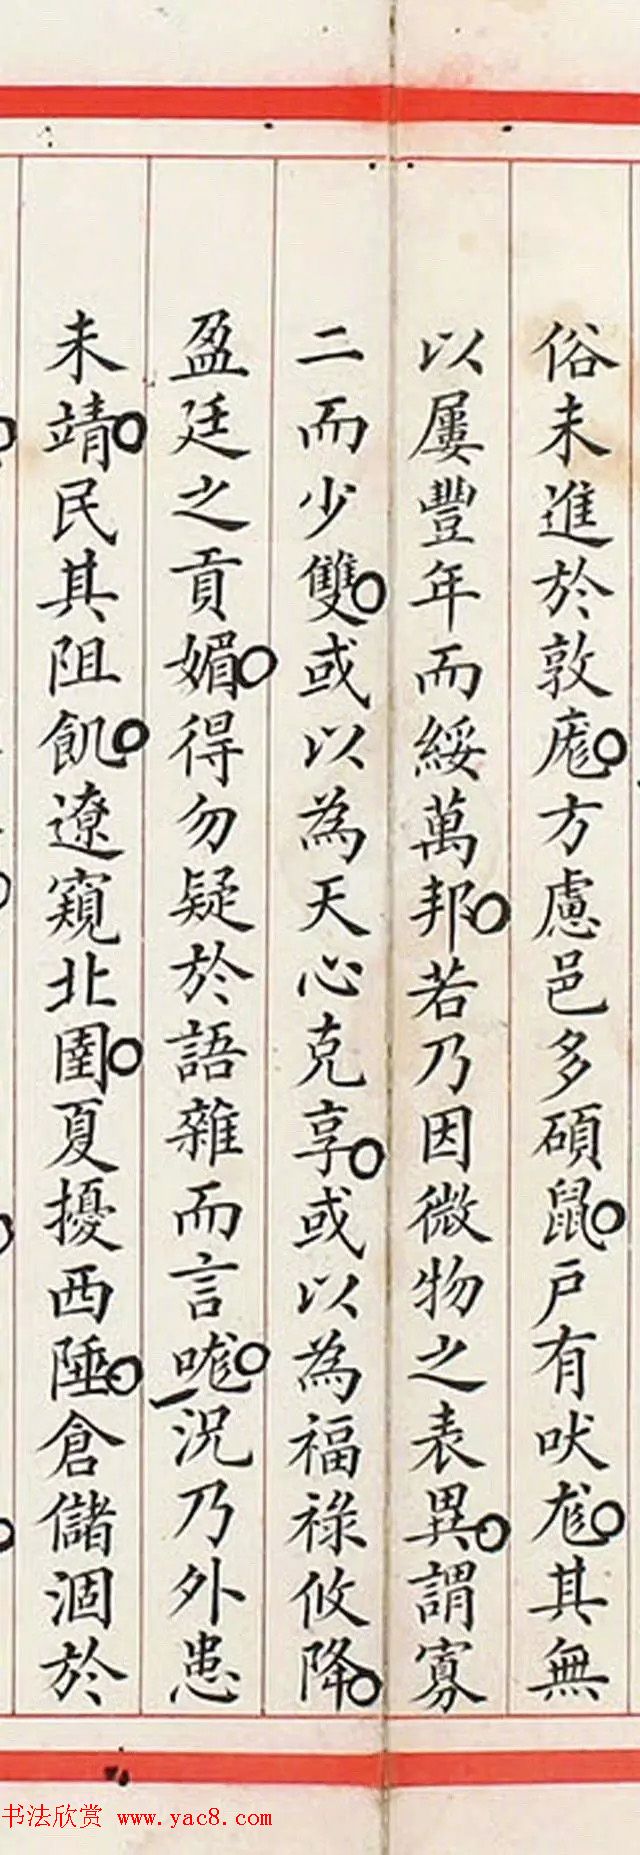 俗未進於敦庬方慮邑多碩鼠戶有吠尨其無
以屢豐年而綏萬邦若乃因微物之表異謂寡
二而少雙或以為天心克享或以為福祿攸降
盈廷之貢媚得勿疑於語雜而言哤況乃外患
未靖民其阻飢遼窺北圉夏擾西陲倉儲涸於
书法欣赏 www.yac8.com